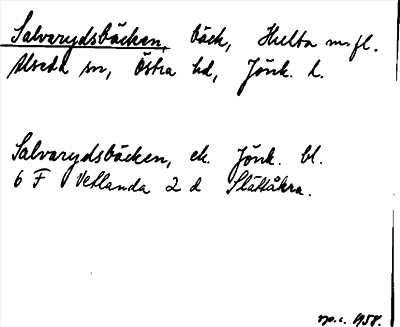 Salvarydsbäcken, bäck, Hulta m.fl.
Alseda sn, Östra hd, Jönk. l.
Salvarydsbäcken, ek. Jönk. bl.
6 F Vetlanda 2 d Slättåkra.
op.c. 1958.